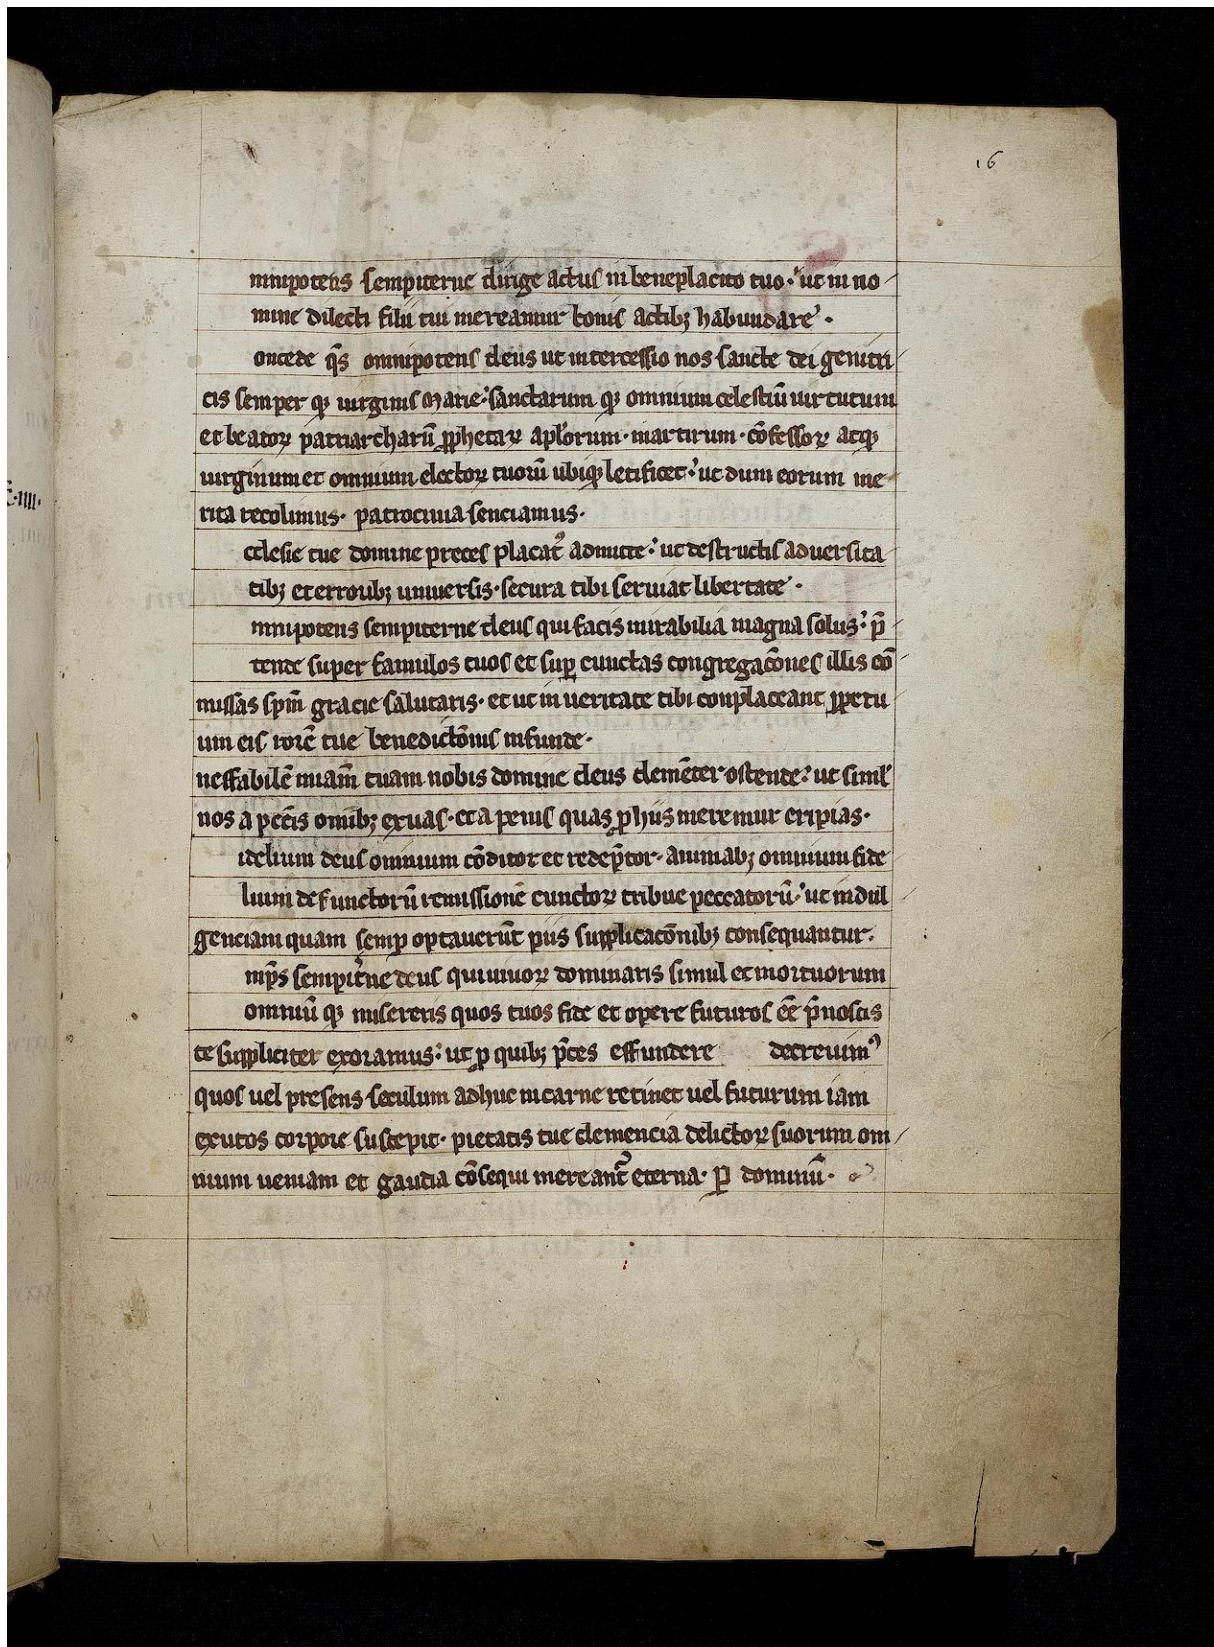 16
mnipotens sempiterne dirige actus in beneplacito tuo· ut in no
mine dilecti filii tui mereamur bonis actibꝫ habundare·
oncede q̄s omnipotens deus ut intercessio nos sancte dei genitri
cis semper qꝫ uirginis marie· sanctarum qꝫ omnium celestiū uirtutum
et beatoꝝ patriarcharū ꝓphetaꝝ apl̓orum· martirum· cōfessoꝝ atqꝫ
uirginum et omnium electoꝝ tuorū ubiqꝫ letificet· ut dum eorum me
rita recolimus· patrocinia senciamus·
cclesie tue domine preces placatꝰ admitte· ut destructis aduersita
tibꝫ et erroribꝫ uniuersis· secura tibi seruiat libertate·
mnipotens sempiterne deus qui facis mirabilia magna solus· p̄
tende super famulos tuos et suꝑ cunctas congregacōnes illis cō
missas spm̄ gracie salutaris· et ut in ueritate tibi conplaceant ꝑpetu
um eis rorē tue benedictōnis infunde·
neffabilē miam̄ tuam nobis domine deus clemēter ostende· ut siml̓
nos a pcc̄is omībꝫ exuas· et a penis quas ꝓ hiis meremur eripias·
idelium deus omnium cōditor et redēptor· animabꝫ omnium fide
lium defunctorū remissionē cunctoꝝ tribue peccatorū· ut indul
genciam quam semꝑ optauerūt piis supplicacōnibꝫ consequantur·
mp̄s sempit̓ne deus qui uiuoꝝ dominaris simul et mortuorum
omniū qꝫ misereris quos tuos fide et opere futuros eē p̄noscis
te suppliciter exoramus· ut ꝓ quibꝫ p̄ces effundere decreuimꝰ
quos uel presens seculum adhuc in carne retinet uel futurum iam
exutos corpore suscepit· pietatis tue clemencia delictoꝝ suorum om
nium ueniam et gaudia cōsequi mereant᷑ eterna· ꝑ dominū·